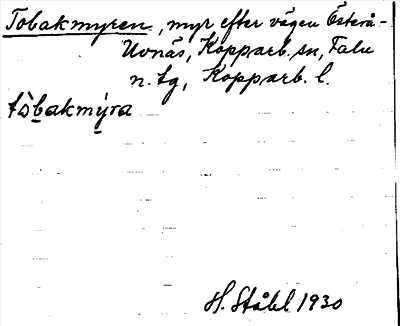 Tobakmyren, myr efter vägen Österå-
Uvnäs, Kopparb. sn, Falu
n. tg, Kopparb. l.
tòbakmýra
H. Ståhl 1930